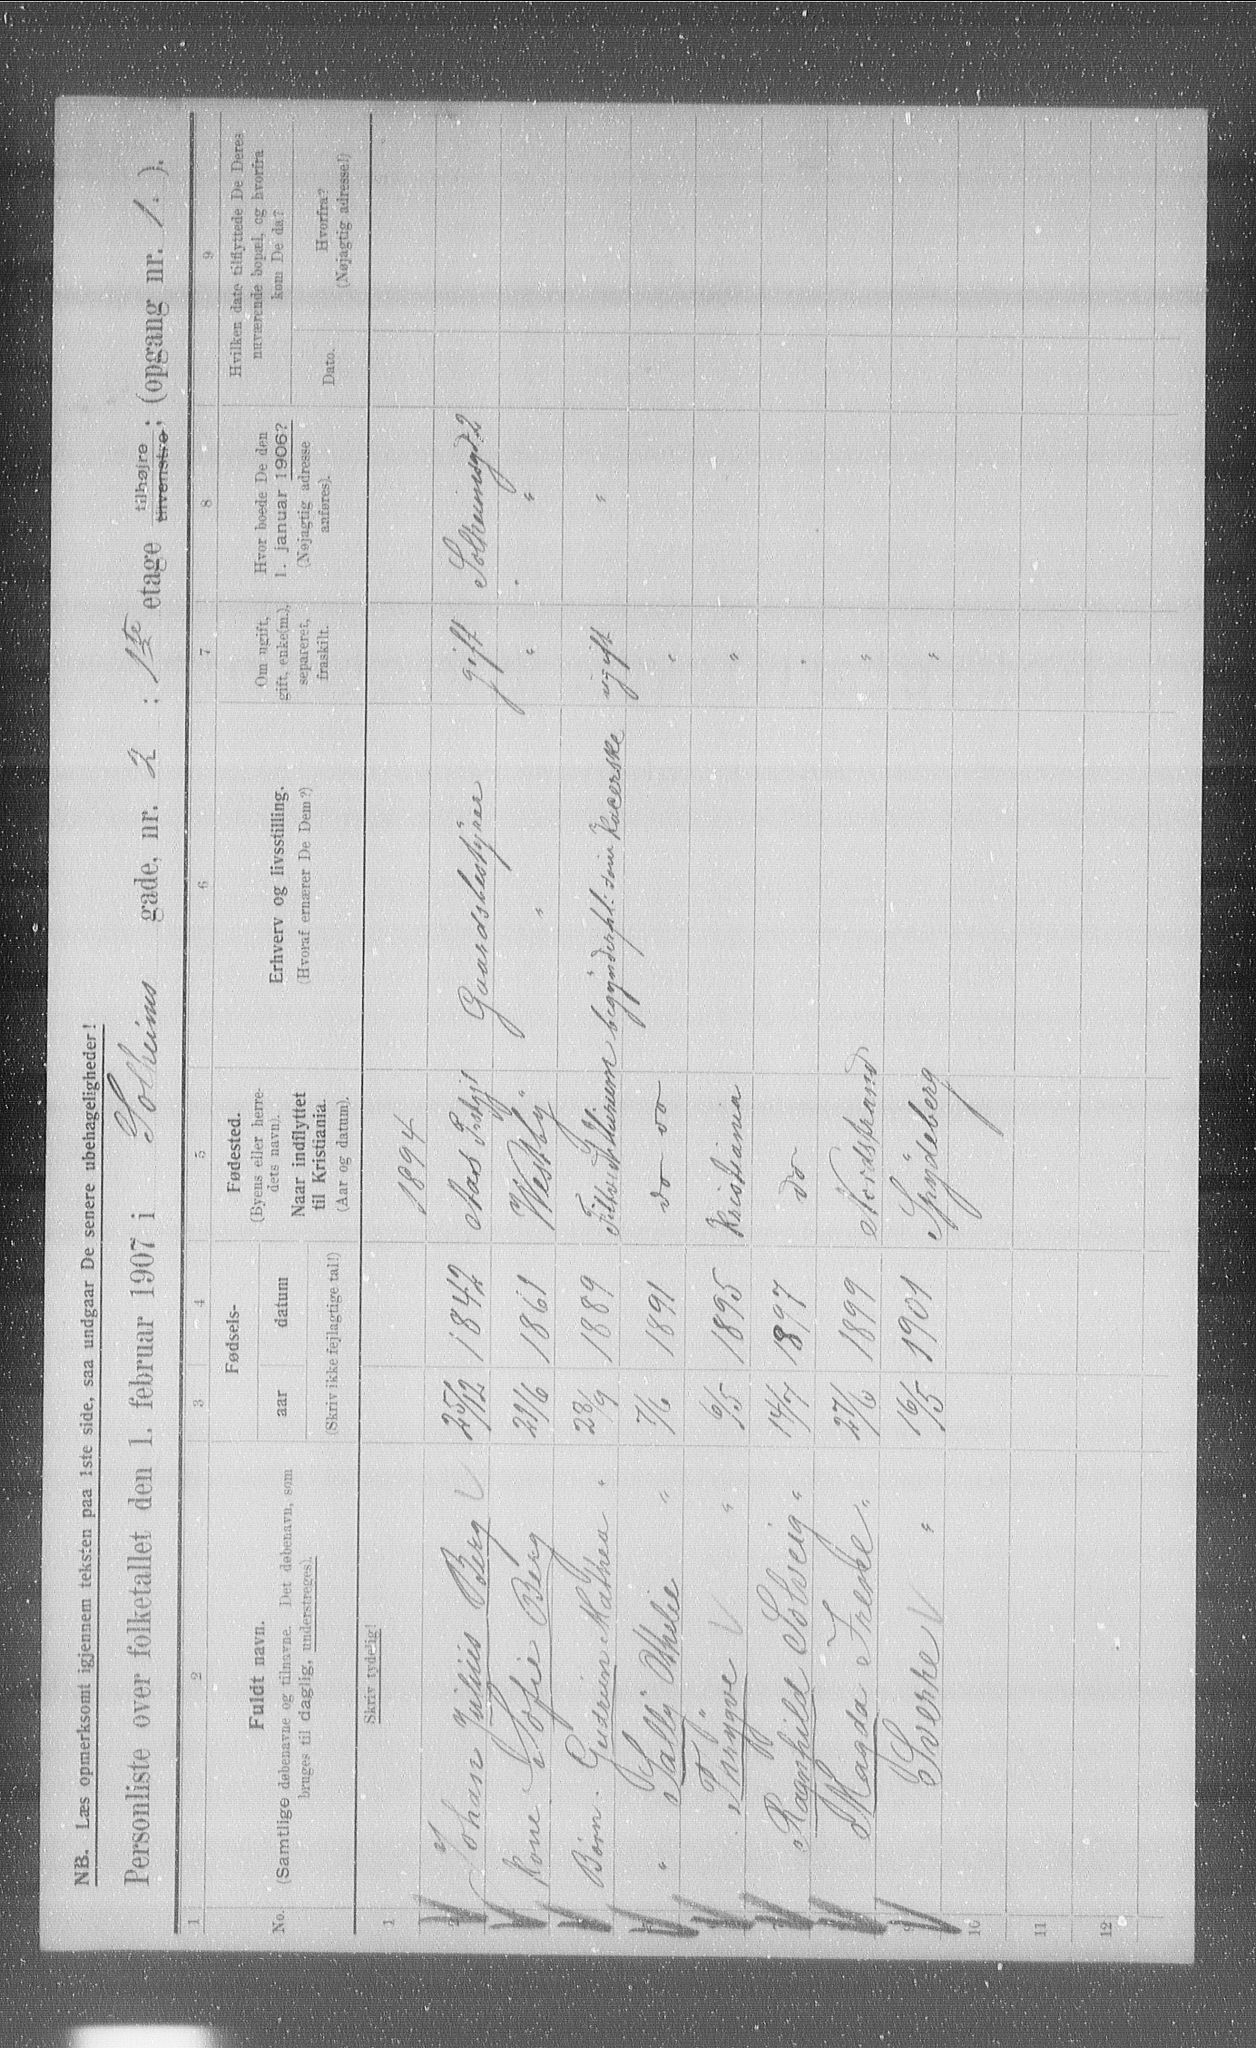 NB. Læs opmerksomt igjennem teksten paa 1ste side, saa undgaar De senere ubehageligheder!
Personliste over folketallet den 1. februar 1907 i Solheims gade, nr. 2 : 1ste etage tilhøjre tilvenstre; (opgang nr. 1. ).
1 2 3 4 5 6 7 8 9
No.
Fuldt navn.
(Samtlige døbenavne og tilnavne. Det døbenavn, som
bruges til daglig, understreges).
Fødsels-
aar datum
(Skriv ikke fejlagtige tal!)
Fødested.
(Byens eller herre-
dets navn).
Naar indflyttet
til Kristiania.
(Aar og datum).
Erhverv og livsstilling.
(Hvoraf ernærer De Dem?)
Om ugift,
gift, enke(m.),
separeret,
fraskilt.
Hvor boede De den
1. januar 1906?
(Nøjagtig adresse
anføres).
Hvilken dato tilflyttede De Deres
nuværende bopæl, og hvorfra
kom De da?
Dato.
Hvorfra?
(Nøjagtig adresse!)
Skriv tydelig!
1 1894
2 Johan Julius Berg 25/12 1842 Gaardsbestyrer gift Solheimsgd. 2
Kone Sofie Berg 21/6 1861 Westby " " " "
Børn Gudrun Mathea " 28/9 1889 begynder som ugift "
" Sally Othelie " 7/6 1891 do do "
Trygve " 6/5 1895 Kristiania "
Ragnhild Solveig " 14/7 1897 do "
Magda Irene " 27/6 1899 Nordstrand "
9 Sverre " 16/5 1901 Spydeberg "
10
11
12